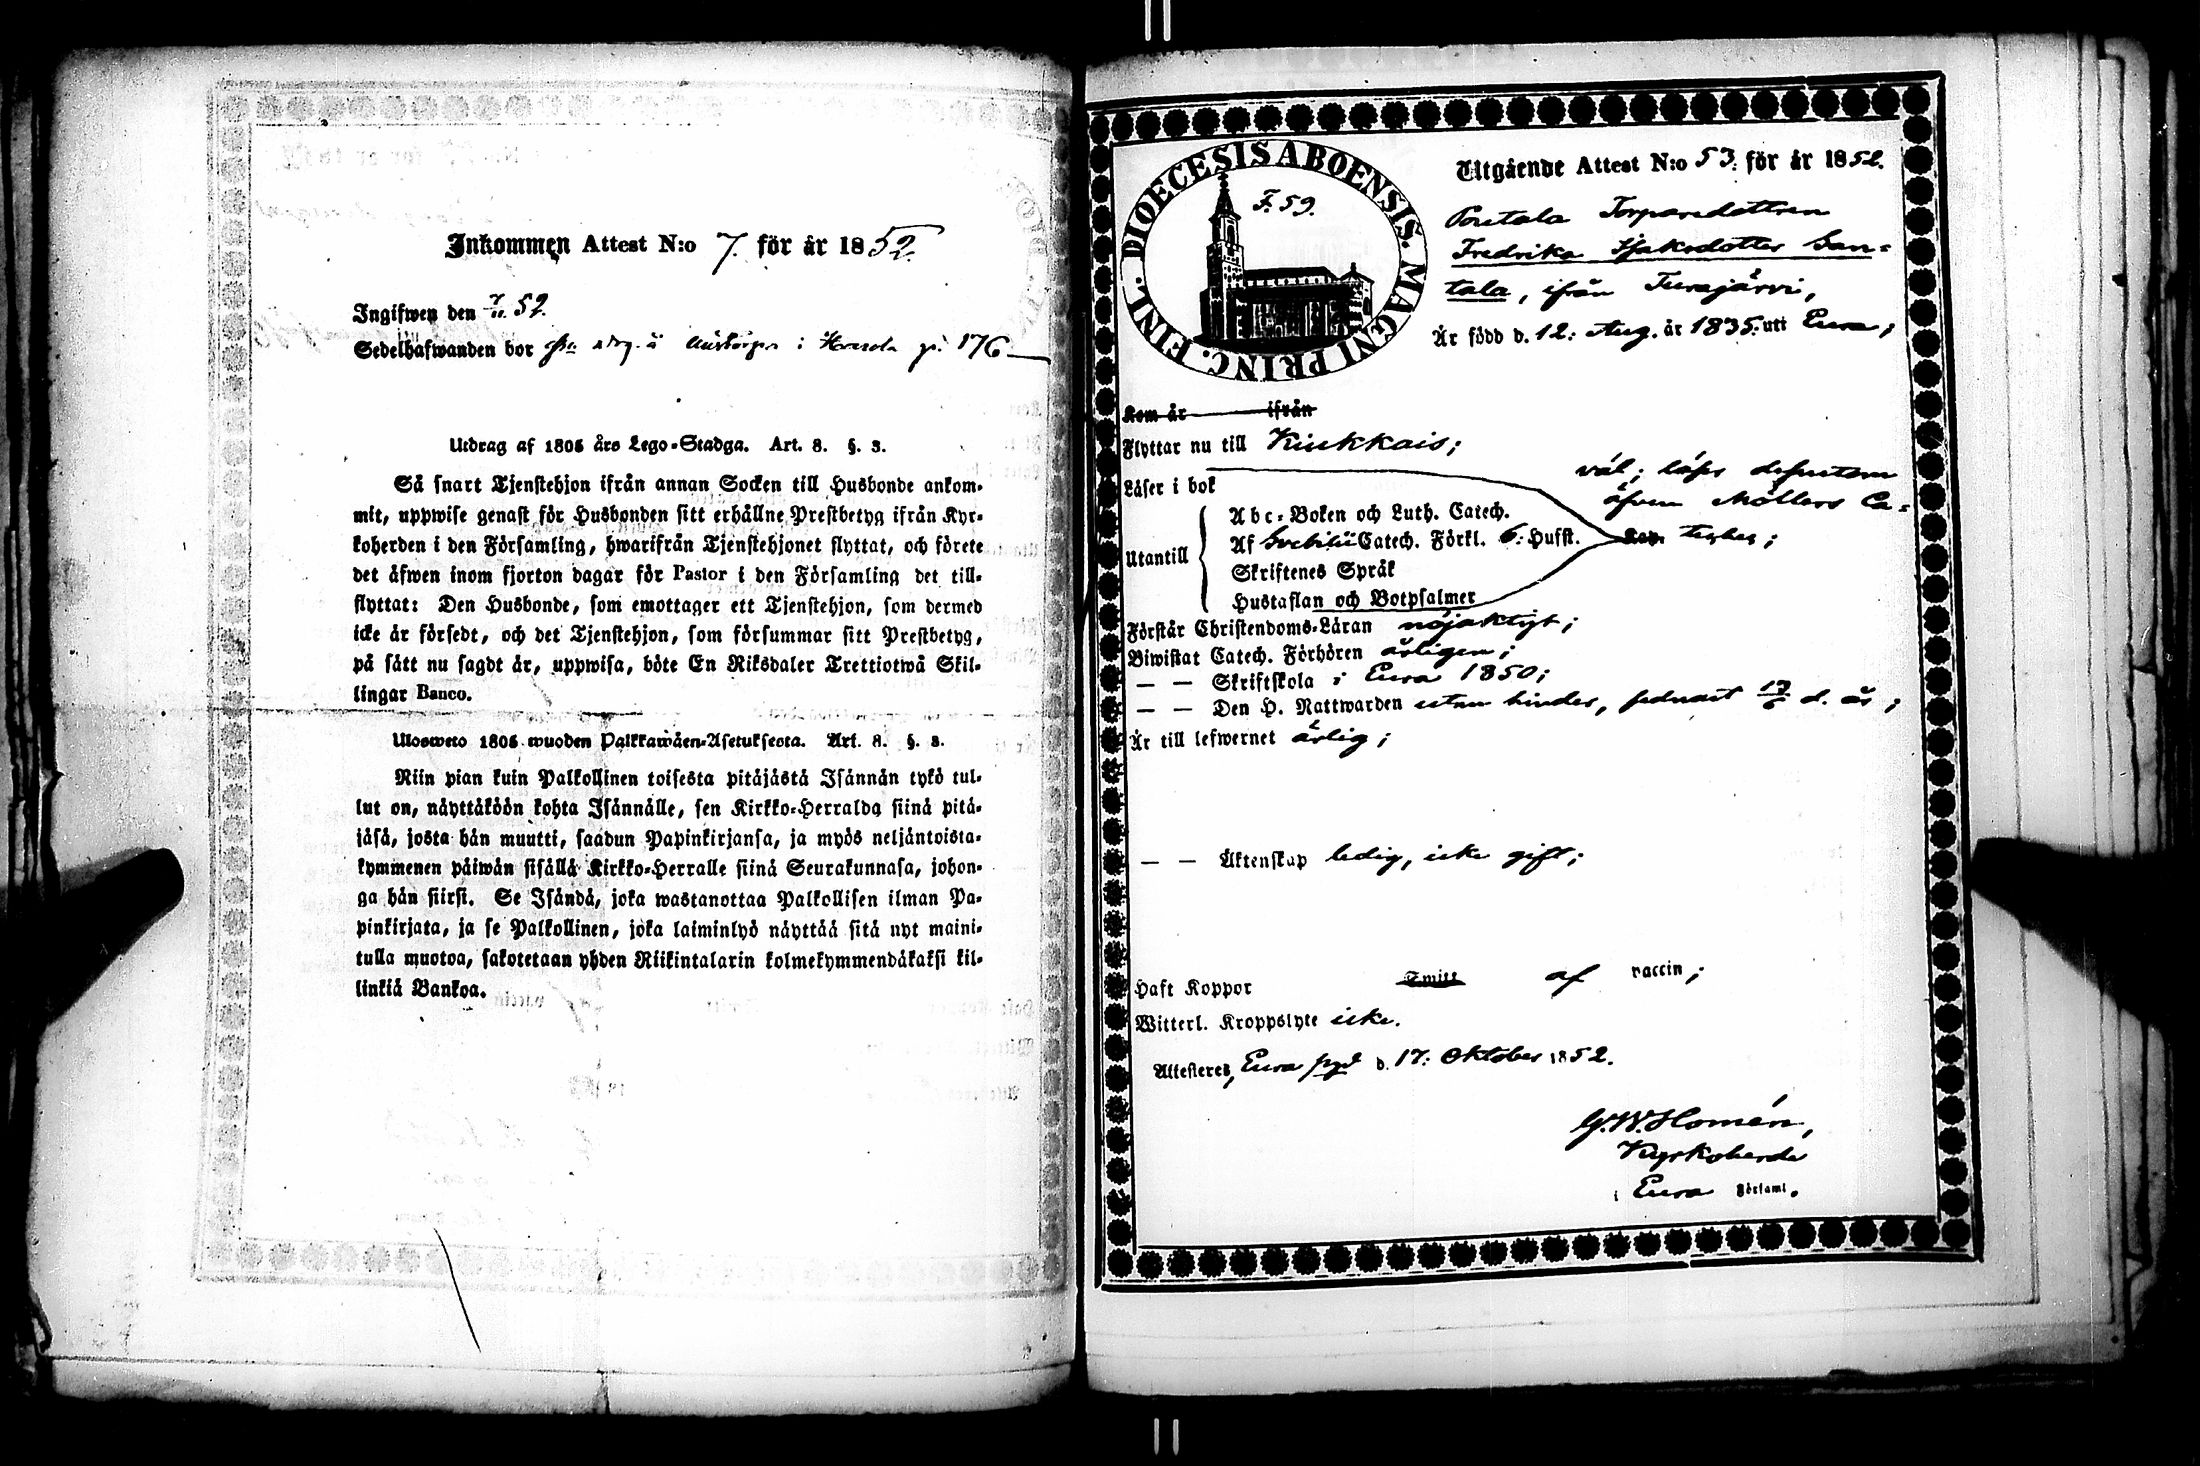 Inkommen Attest N:o 7. för år 1852.
Ingifwen den 7/11 52.
Sedelhafwanden bor på 176
Utdrag af 1805 års Lego-Stadga. Art. 8. §. 3.
Så snart Tjenstehjon ifrån annan Socken till Husbonde ankom-
mit, uppwise genast för Husbonden sitt erhållne Prestbetyg ifrån Kyr-
koherden i den Församling, hwarifrån Tjenstehjonet flyttat, och förete
det äfwen inom fjorton dagar för Pastor i den Församling det till-
flyttat: Den Husbonde, som emottager ett Tjenstehjon, som dermed
icke är försedt, och det Tjenstehjon, som försummar sitt Prestbetyg,
på sätt nu sagdt är, uppwisa, böte En Riksdaler Trettiotwå Skil-
lingar Banco.
Ulosweto 1805 wuoden Palkkawäen-Asetuksesta. Art. 8. §. 3.
Niin pian kuin Palkollinen toisesta pitäjästä Isännän tykö tul-
lut on, näyttäköön kohta Isännälle, sen Kirkko-Herralda siinä pitä-
jäsä, josta hän muutti, saadun Papinkirjansa, ja myös neljäntoista-
kymmenen päiwän sisällä Kirkko-Herralle siinä Seurakunnasa, johon-
ga hän siirsi. Se Isändä, joka wastanottaa Palkollisen ilman Pa-
pinkirjata, ja se Palkollinen, joka laiminlyö näyttää sitä nyt maini-
tulla muotoa, sakotetaan yhden Riikintalarin kolmekymmendäkaksi kil-
linkiä Bankoa.
DIOECESIS ABOENSIS. MAGNI PRINC. FINL.
F. 59.
Utgående Attest N:o 53. för år 1852.
Torparedottren
Fredrika Isaksdotter San-
tala, ifrån Turajärvi,
Är född d. 12. Aug. år 1835. uti Eura;
Kom år ifrån
Flyttar nu till Kiukkais;
väl; läser dessutom
Läser i bok
äfven Möllers Ca-
Abc-Boken och Luth. Catech.
Af Svebilii Catech. Förkl. 6. Hufst. teches;
Utantill
Skriftenes Språk
Hustaflan och Botpsalmer
Förstår Christendoms-Läran nöjaktigt;
Biwistat Catech. Förhören årligen;
— — Skriftskola i Eura 1850;
— — Den H. Nattwarden utan hinder, senast d. år;
Är till lefwernet ärlig;
— — Äktenskap ledig, icke gift;
Haft Koppor Smitt af vaccin;
Witterl. Kroppslyte icke.
Attesteres, Eura pgd d. 17. Oktober 1852.
G. W. Homén,
Kyrkoherde
i Eura Församl.